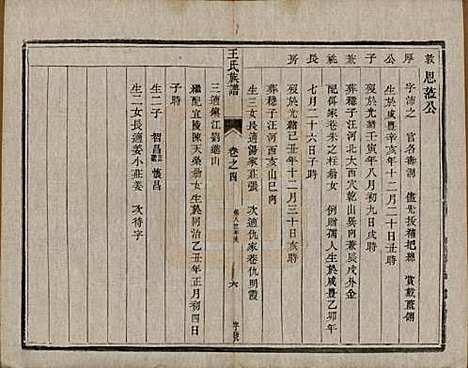 敦厚公子兼祧長房
恩蓀公
字沛之 官名壽湖 儘先拔補把總 賞戴藍翎
生於咸豐辛亥年十二月二十日丑時
歿於光緒壬寅年八月初九日戌時
葬穩子汪河北大西穴乾山巽向兼辰戌外金
配何家巷朱之柱翁女 例贈孺人 生於咸豐乙卯年
七月二十六日子時
歿於光緒己丑年十二月三十日亥時
葬穩子汪河西亥山巳向
生三女長適湯家莊張 次適仇家巷仇明霞
王氏族譜
卷之四
六
三適鎮江劉繼山
繼配宜陵陳天榮翁女生於同治乙丑年正月初四日
子時
生二子 智昌 懷昌
生二女長適姜小莊姜 次待字